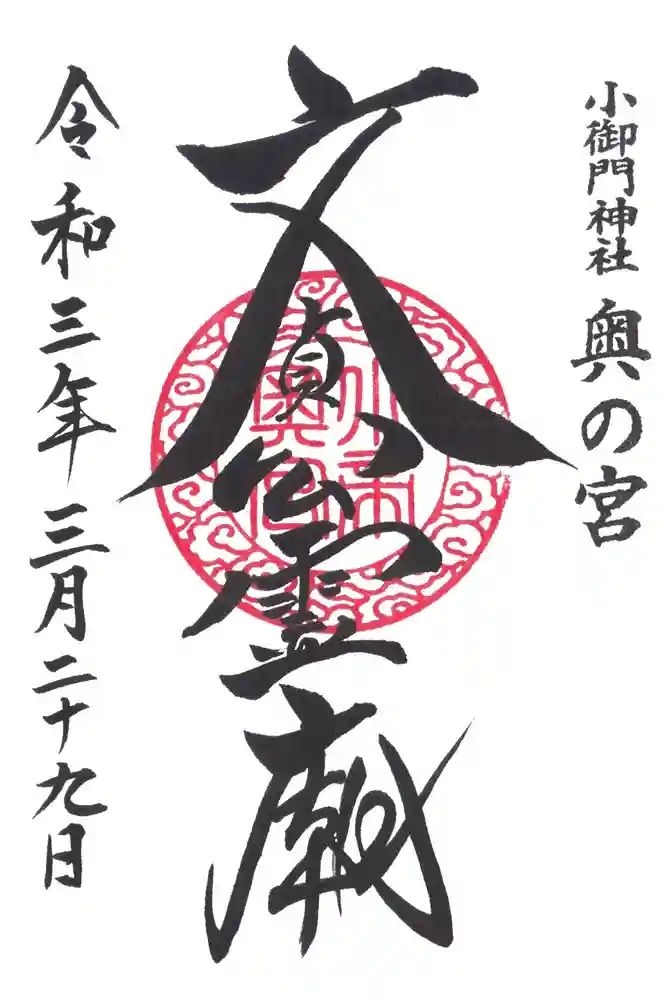 小御門神社 奥の宮
文貞公霊廟
令和三年 三月二十九日